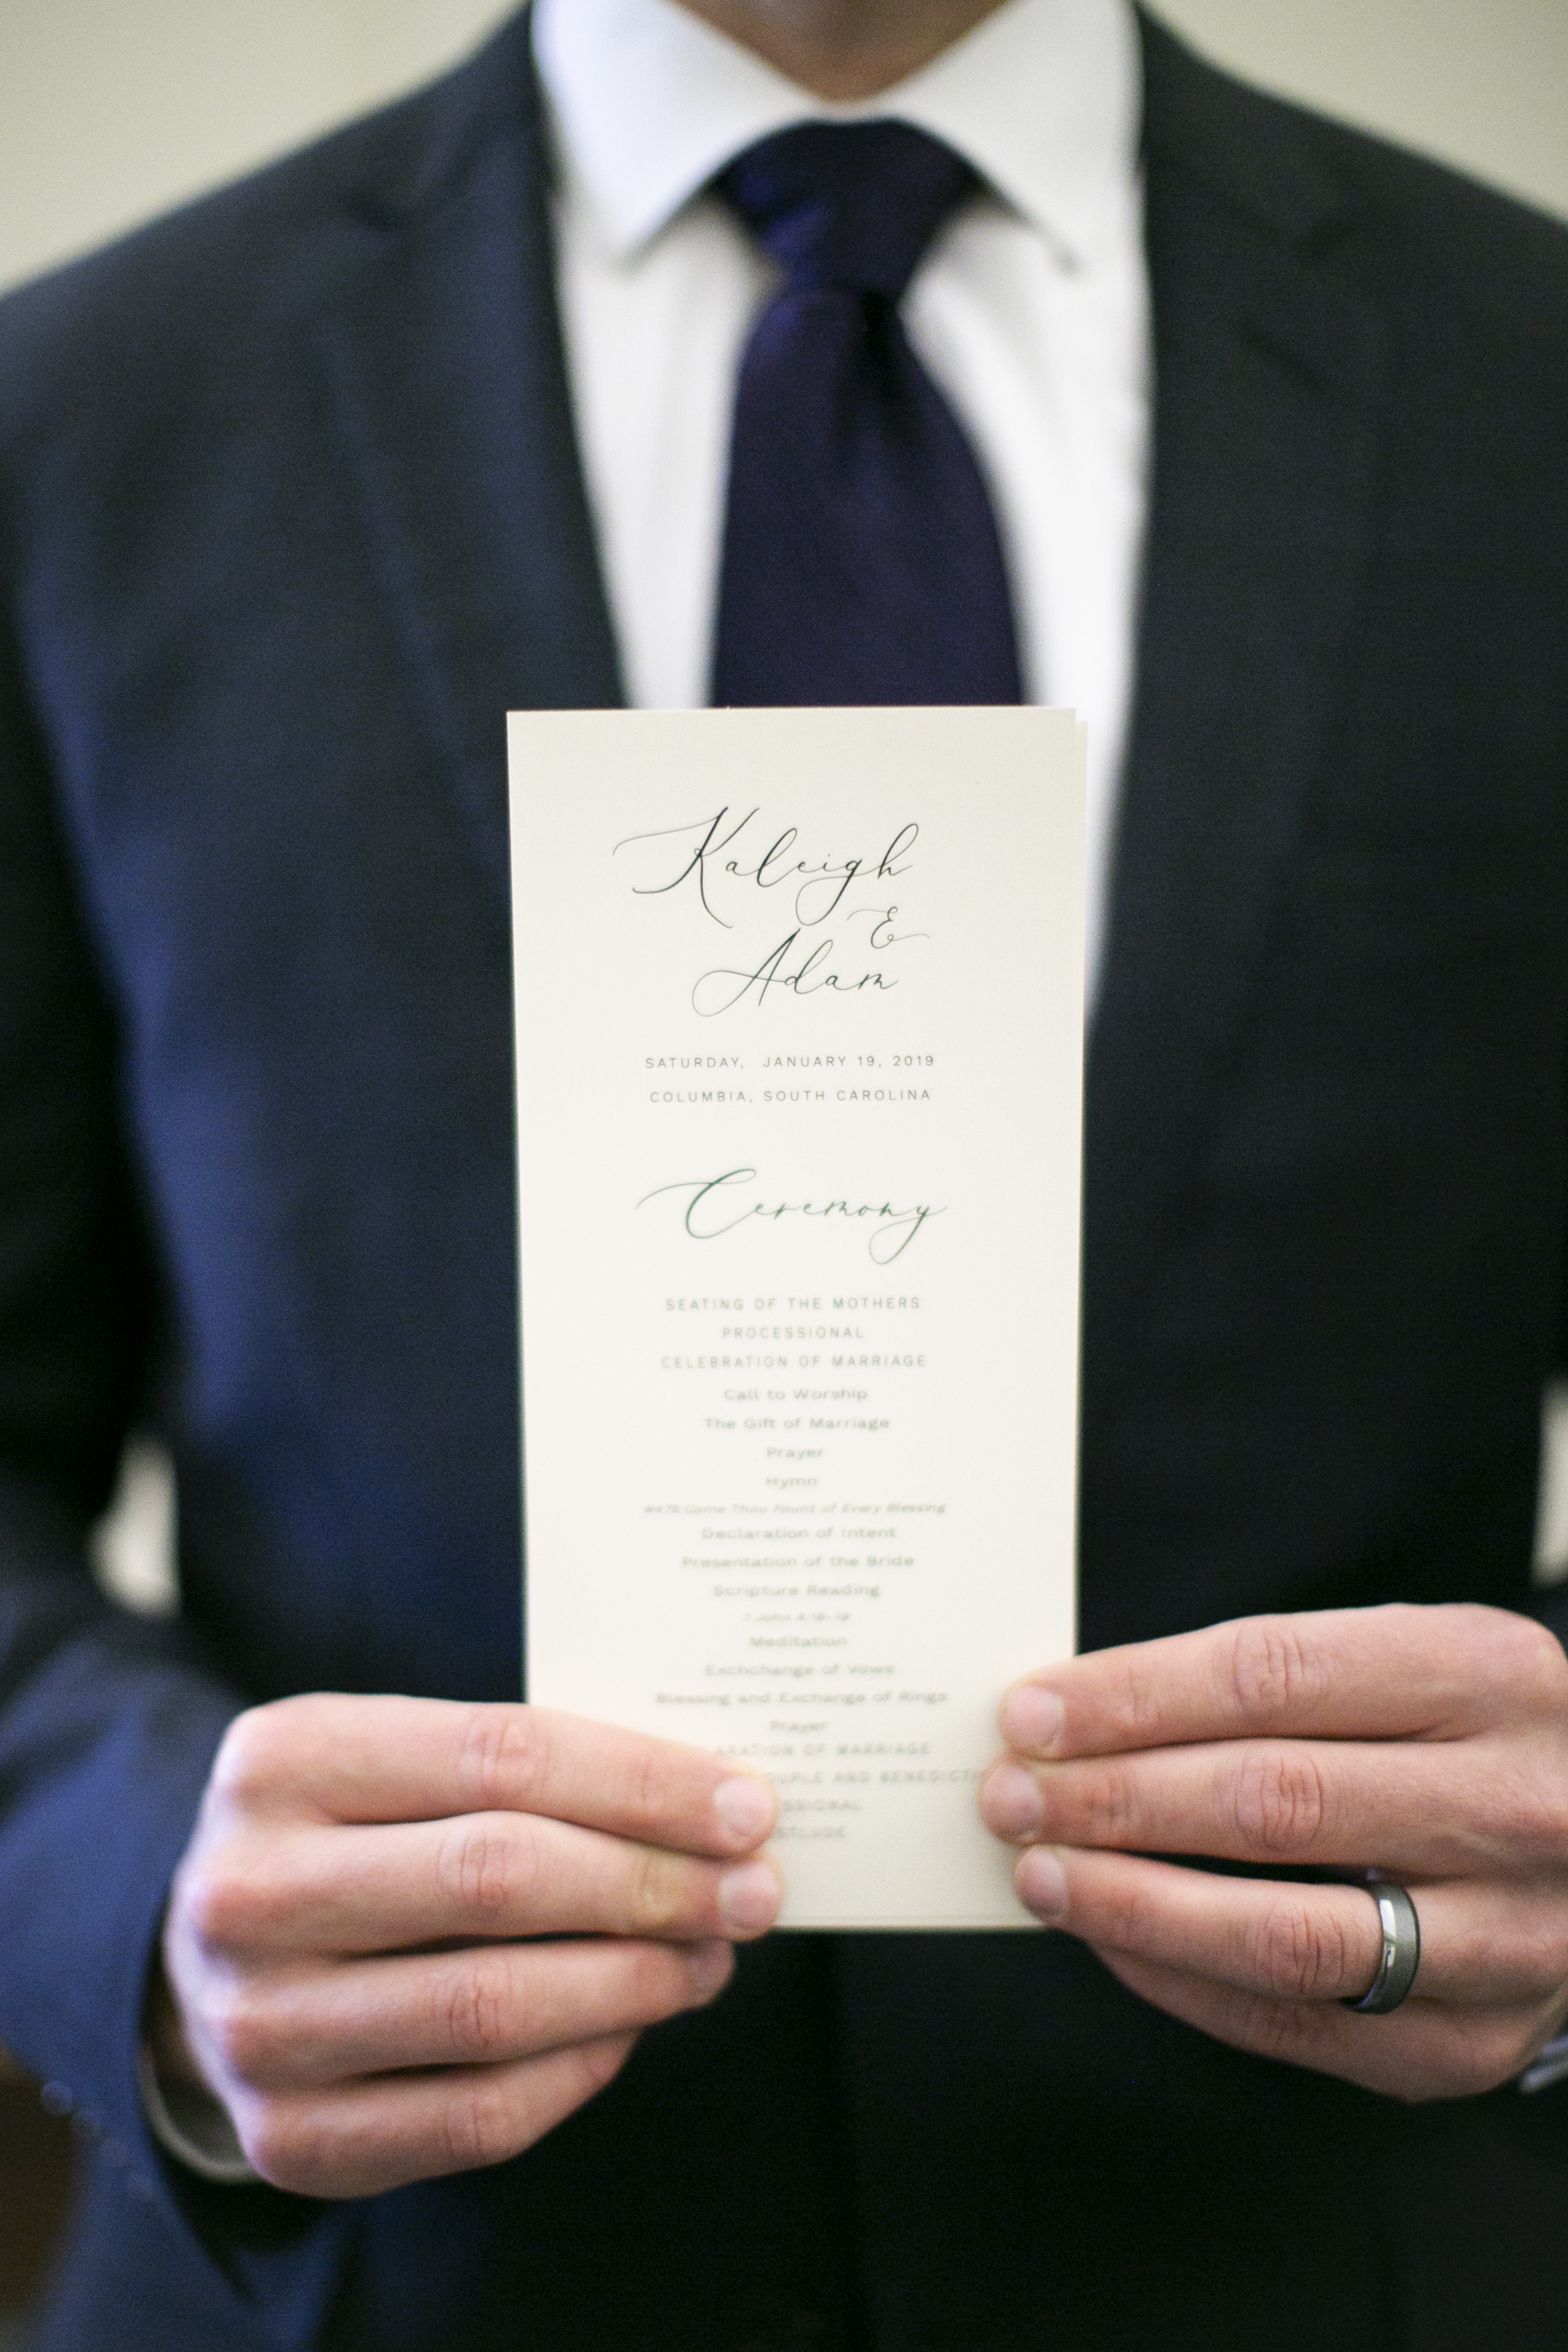 Kaleigh
&
Adam
SATURDAY, JANUARY 19, 2019
COLUMBIA, SOUTH CAROLINA
Ceremony
SEATING OF THE MOTHERS
PROCESSIONAL
CELEBRATION OF MARRIAGE
Call to Worship
The Gift of Marriage
Prayer
Hymn
#475 Come Thou Fount of Every Blessing
Declaration of Intent
Presentation of the Bride
Scripture Reading
1 John 4:16-19
Meditation
Exchchange of Vows
Blessing and Exchange of Rings
Prayer
OF MARRIAGE
AND